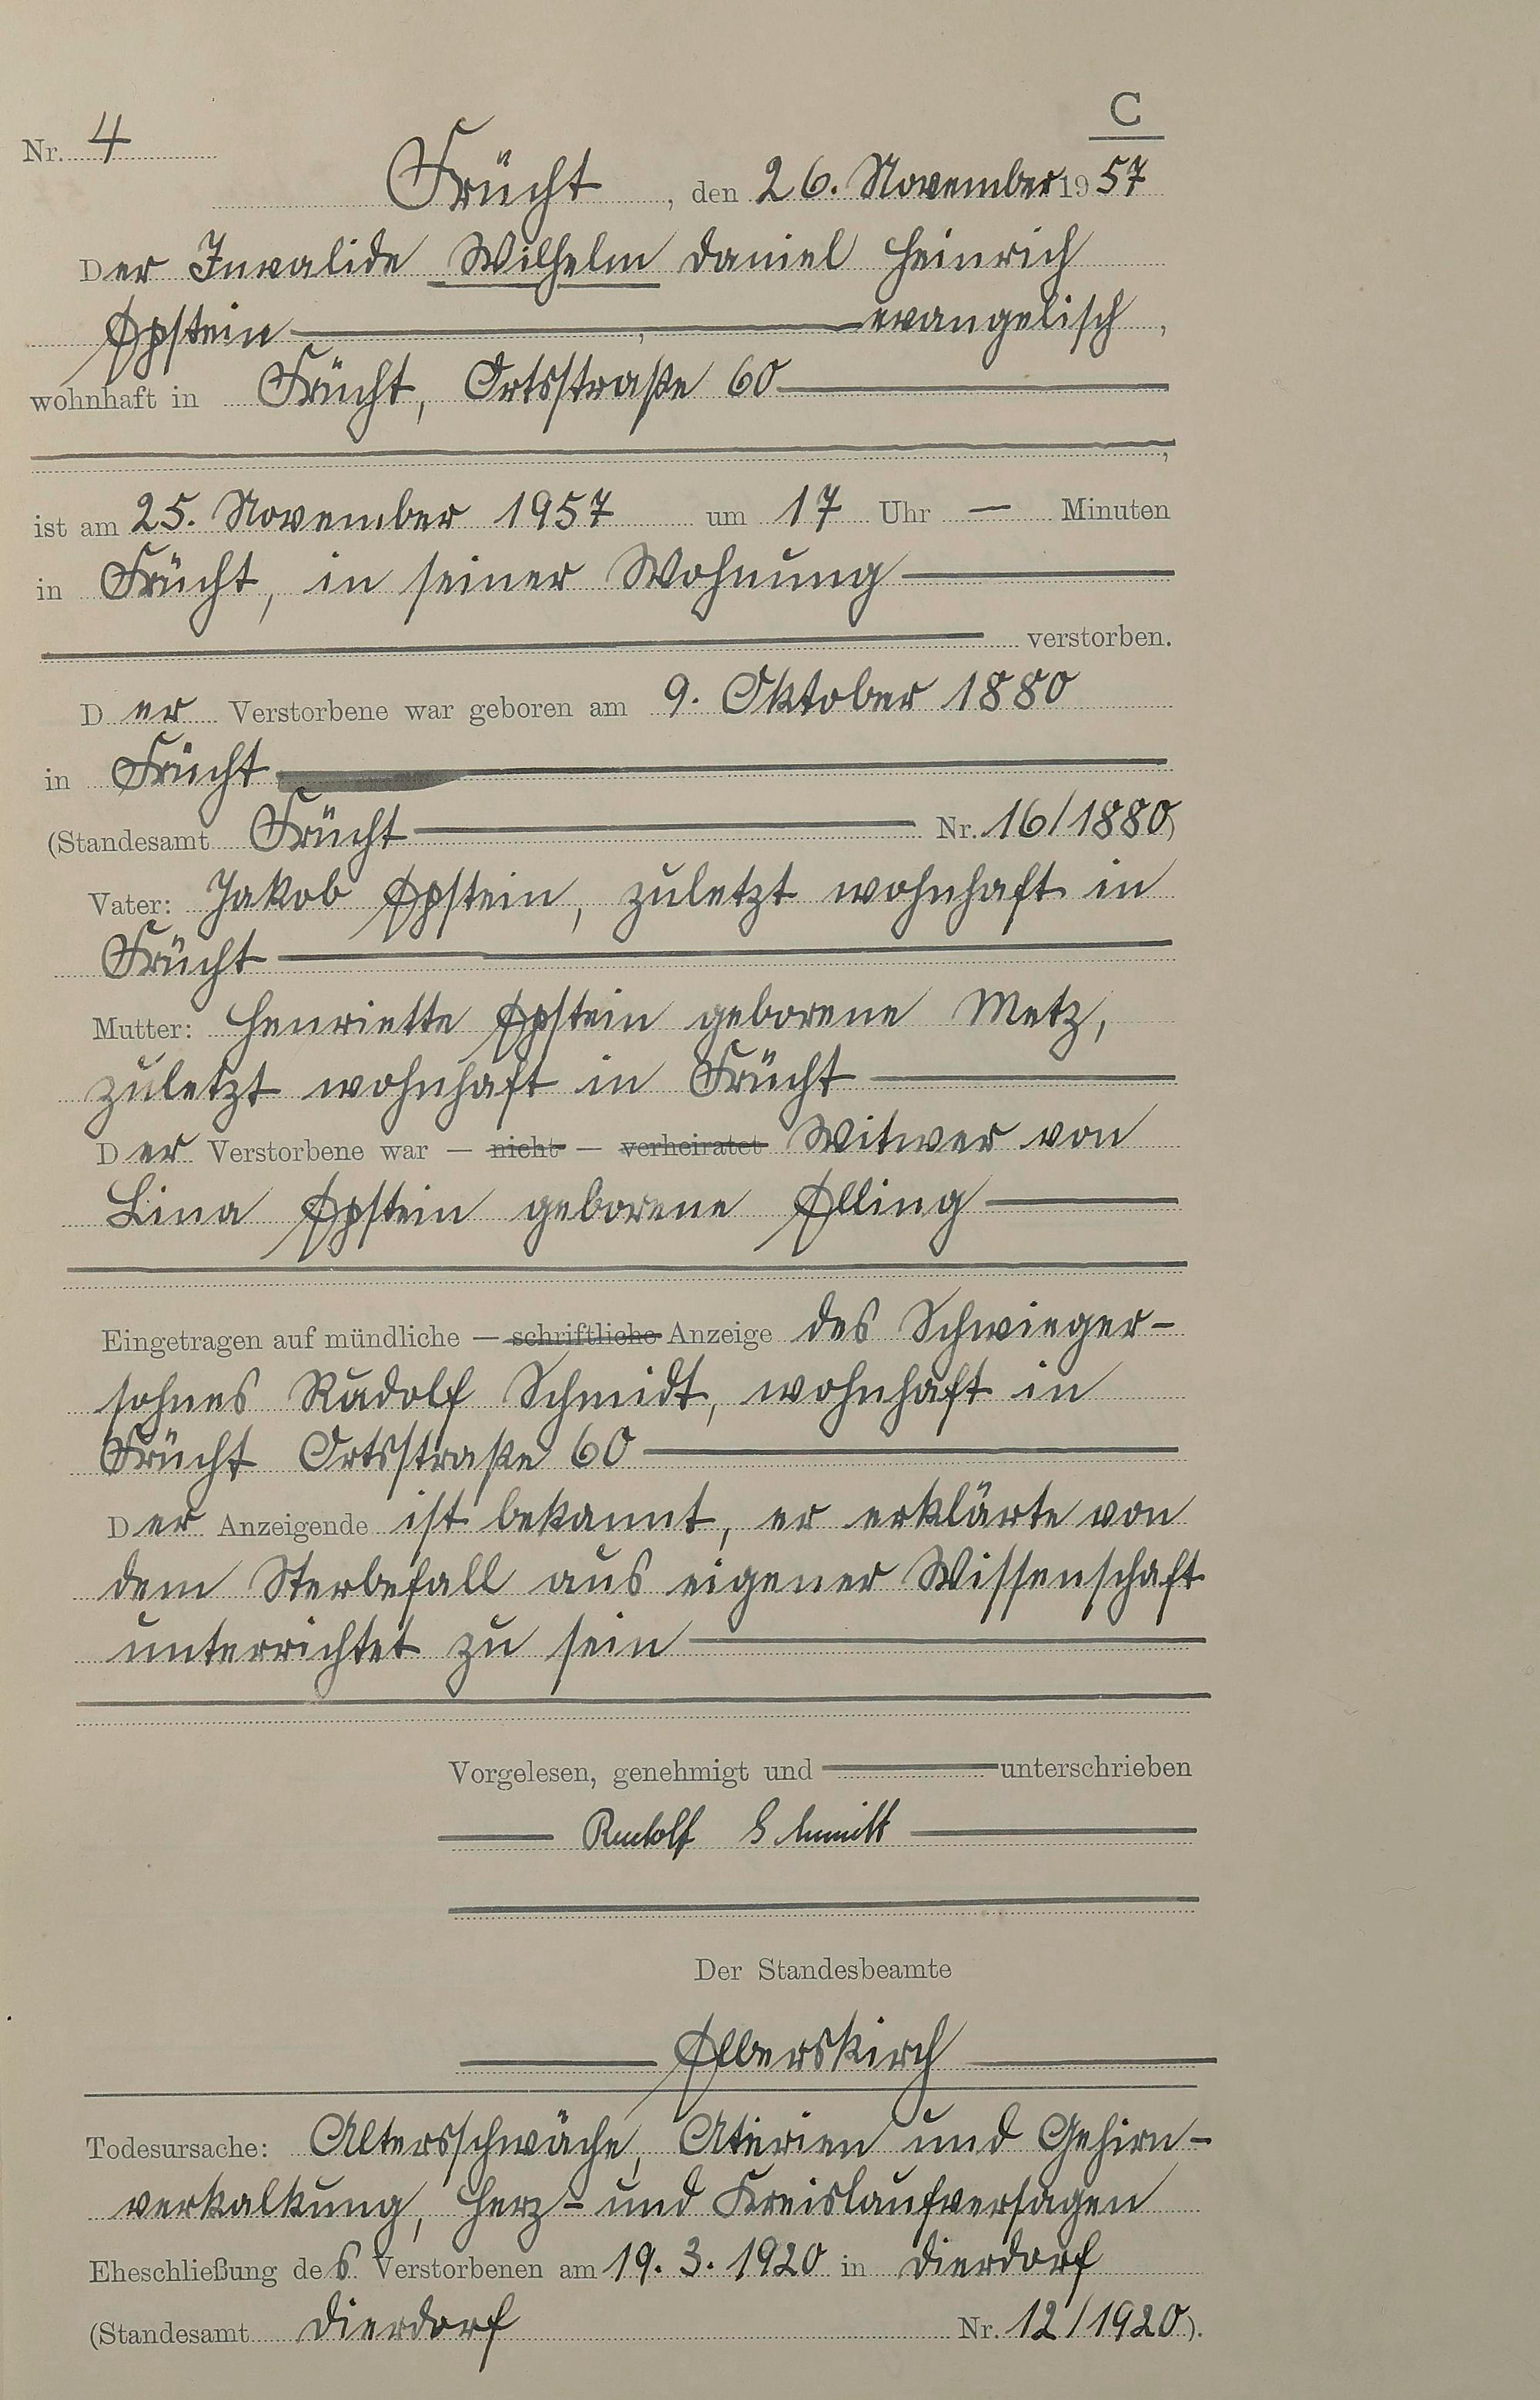 C
Nr. 4
Frücht, den 26. November 1957
Der Invalide Wilhelm Daniel Heinrich
Eppstein evangelisch,
wohnhaft in Frücht, Ortsstraße 60
ist am 25. November 1957 um 17 Uhr — Minuten
in Frücht, in seiner Wohnung
verstorben.
Der Verstorbene war geboren am 9. Oktober 1880
in Frücht
(Standesamt Frücht Nr. 16/1880)
Vater: Jakob Eppstein, zuletzt wohnhaft in
Frücht
Mutter: Henriette Eppstein geborene Metz,
zuletzt wohnhaft in Frücht
Der Verstorbene war — nicht — verheiratet Witwer von
Lina Eppstein geborene Elling
Eingetragen auf mündliche — schriftliche Anzeige des Schwieger-
sohnes Rudolf Schmidt, wohnhaft in
Frücht Ortsstraße 60
Der Anzeigende ist bekannt, er erklärte von
dem Sterbefall aus eigener Wissenschaft
unterrichtet zu sein
Vorgelesen, genehmigt und unterschrieben
Rudolf Schmidt
Der Standesbeamte
Elberskirch
Todesursache: Altersschwäche, Aterien und Gehirn-
verkalkung, Herz- und Kreislaufversagen
Eheschließung des Verstorbenen am 19. 3. 1920 in Dierdorf
(Standesamt Dierdorf Nr. 12/1920).